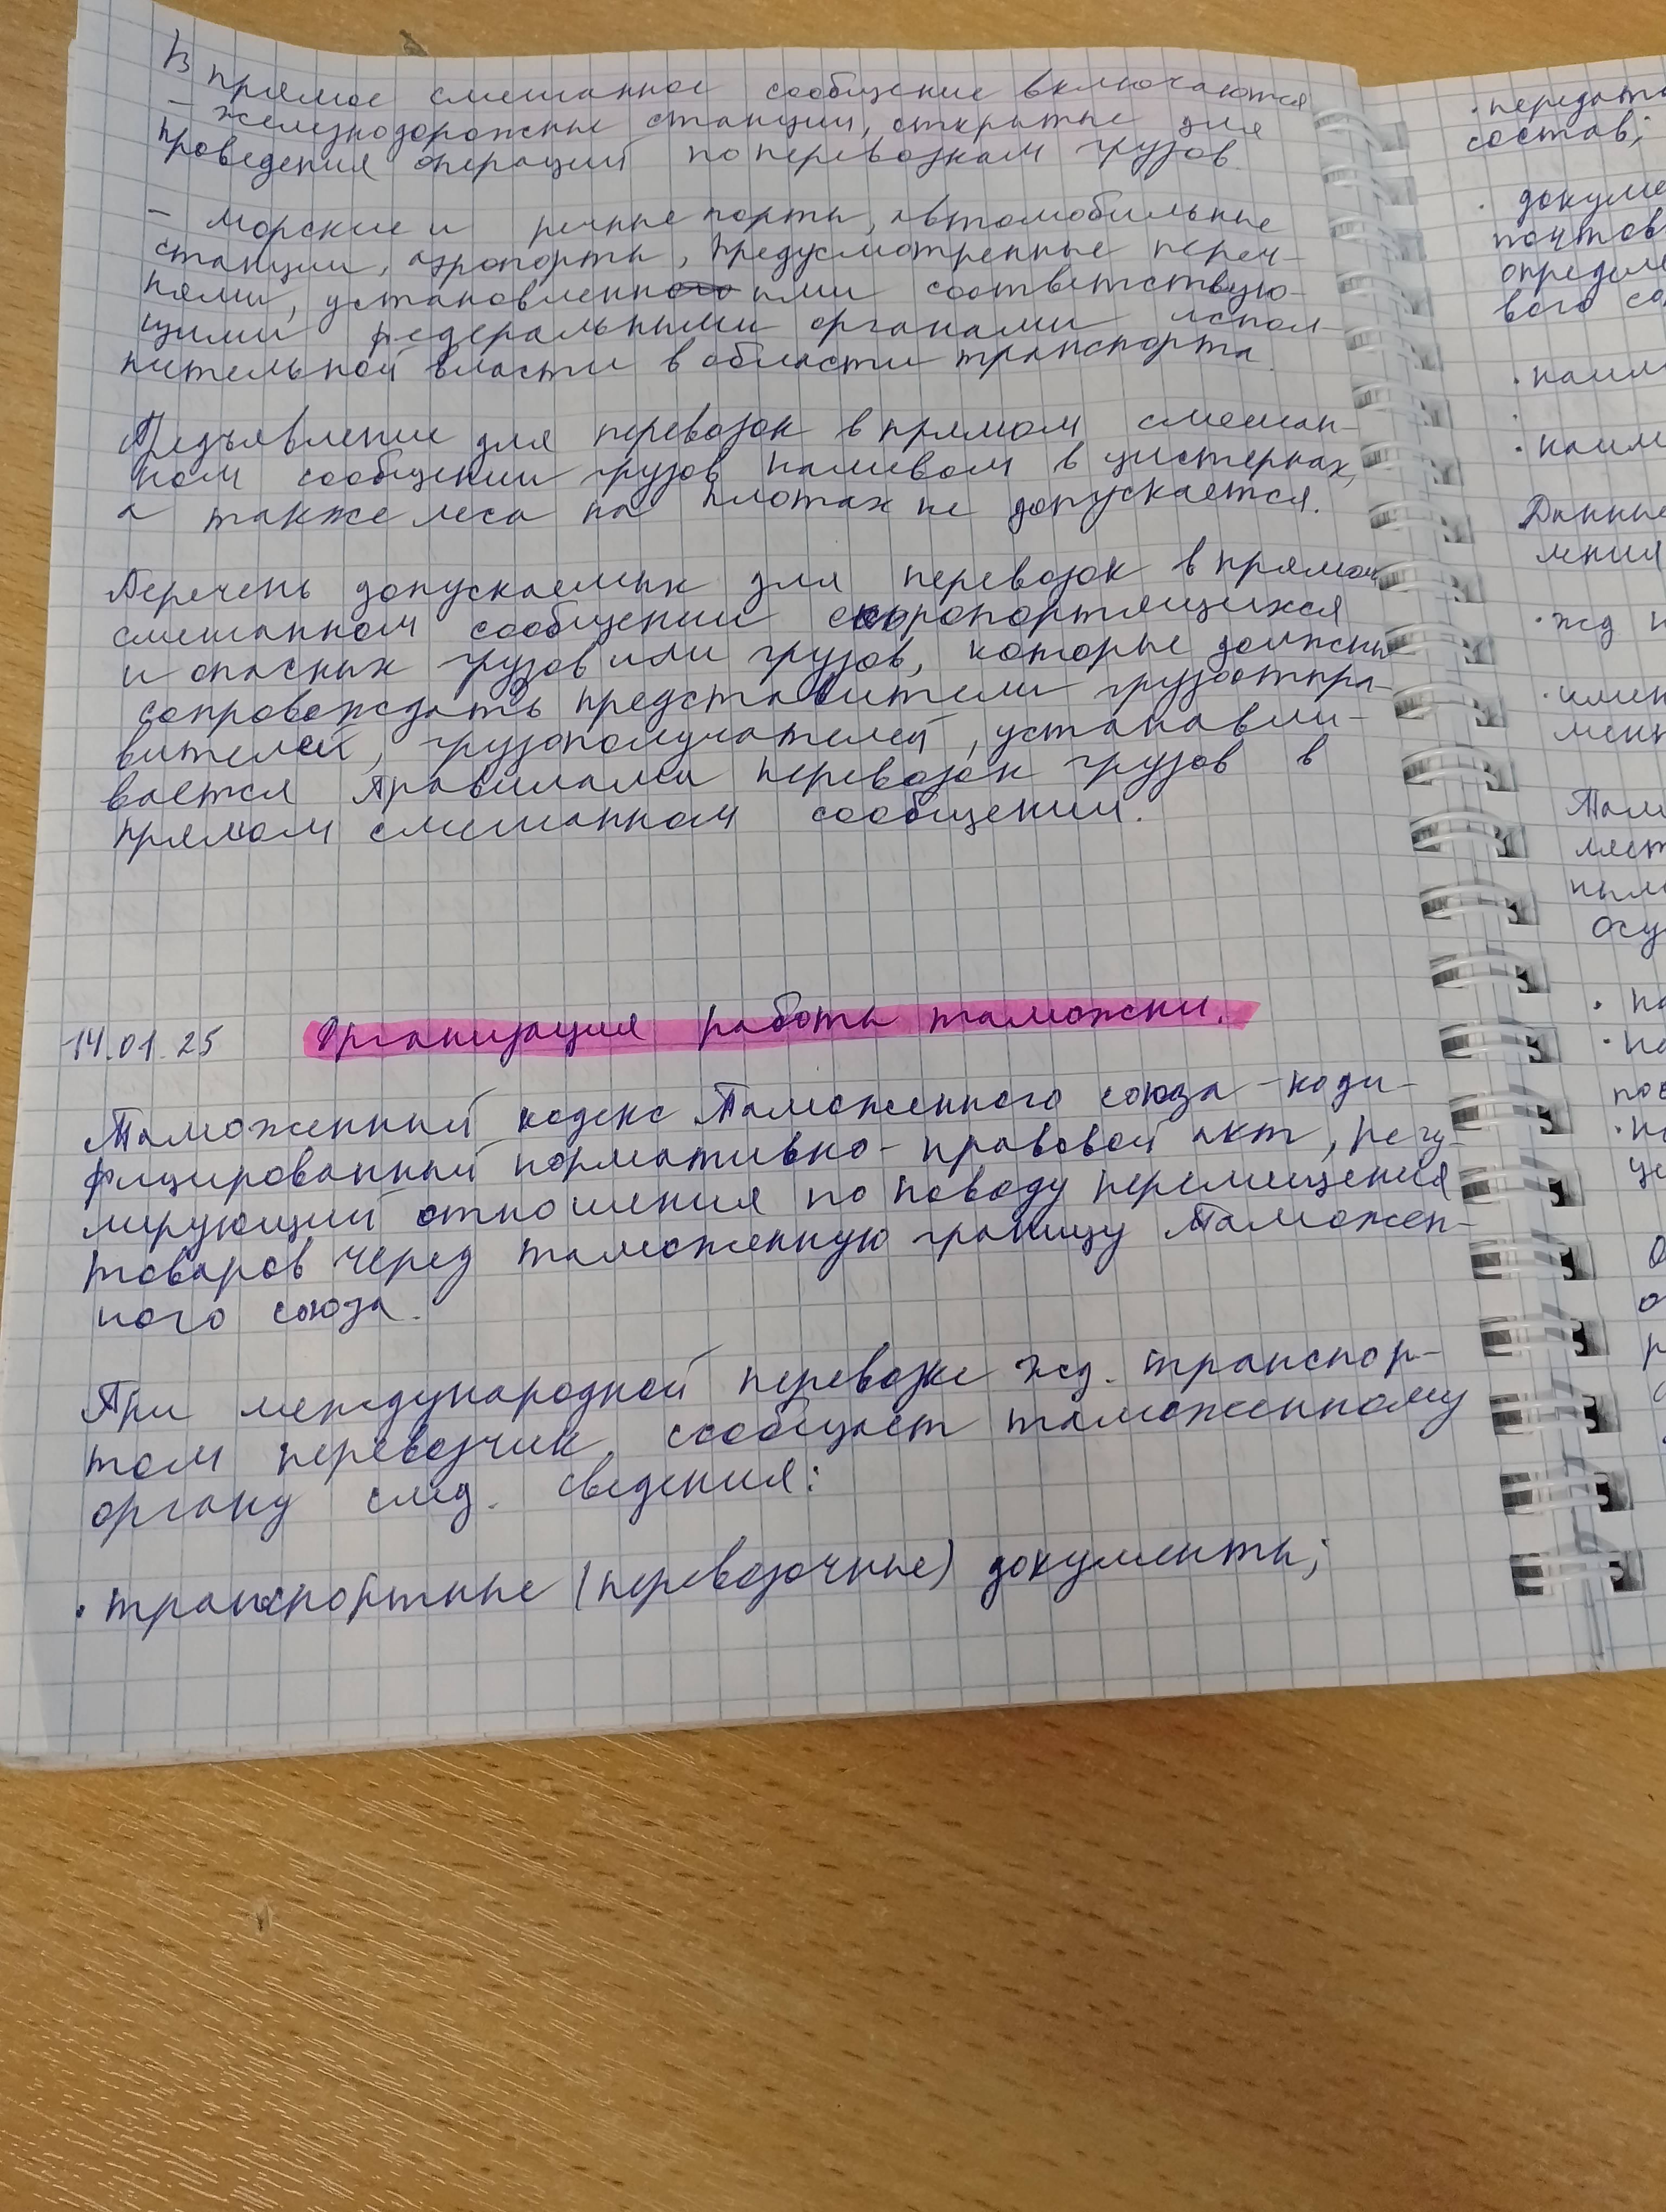 В прямое смешанное сообщение включаются
– железнодорожные станции, открытые для
проведения операций по перевозкам грузов.
– морские и речные порты, автомобильные
станции, аэропорты, предусмотренные переч-
нями, установленными соответствую-
щими федеральными органами испол-
нительной власти в области транспорта.
Предъявление для перевозок в прямом смешан-
ном сообщении грузов наливом в цистернах,
а также леса на плотах не допускается.
Перечень допускаемых для перевозок в прямом
смешанном сообщении скоропортящихся
и опасных грузов или грузов, которые должны
сопровождать представители грузоотпра-
вителей, грузополучателей, устанавли-
вается Правилами перевозок грузов в
прямом смешанном сообщении.
14.01.25 Организация работы таможни.
Таможенный кодекс Таможенного союза – коди-
фицированный нормативно-правовой акт, регу-
лирующий отношения по поводу перемещения
товаров через таможенную границу Таможен-
ного союза.
При международной перевозке жд. транспор-
том перевозчик сообщает таможенному
органу след. сведения:
• транспортные (перевозочные) документы;
• передат
состав;
• докуме
почтов
определ
вого со
• наим
• наим
Данные
ления
• жд
• имен
мент
осу